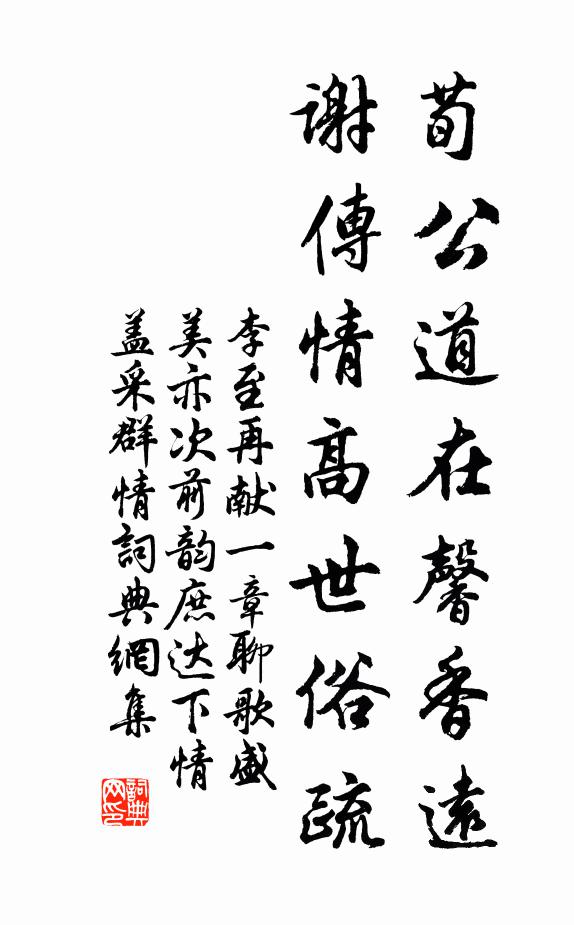 荀公道在馨香遠
謝傅情高世俗疏
李至再献一章聊歌盛
美亦次前韵庶达下情
盖采群情詞典網集
詞典網印